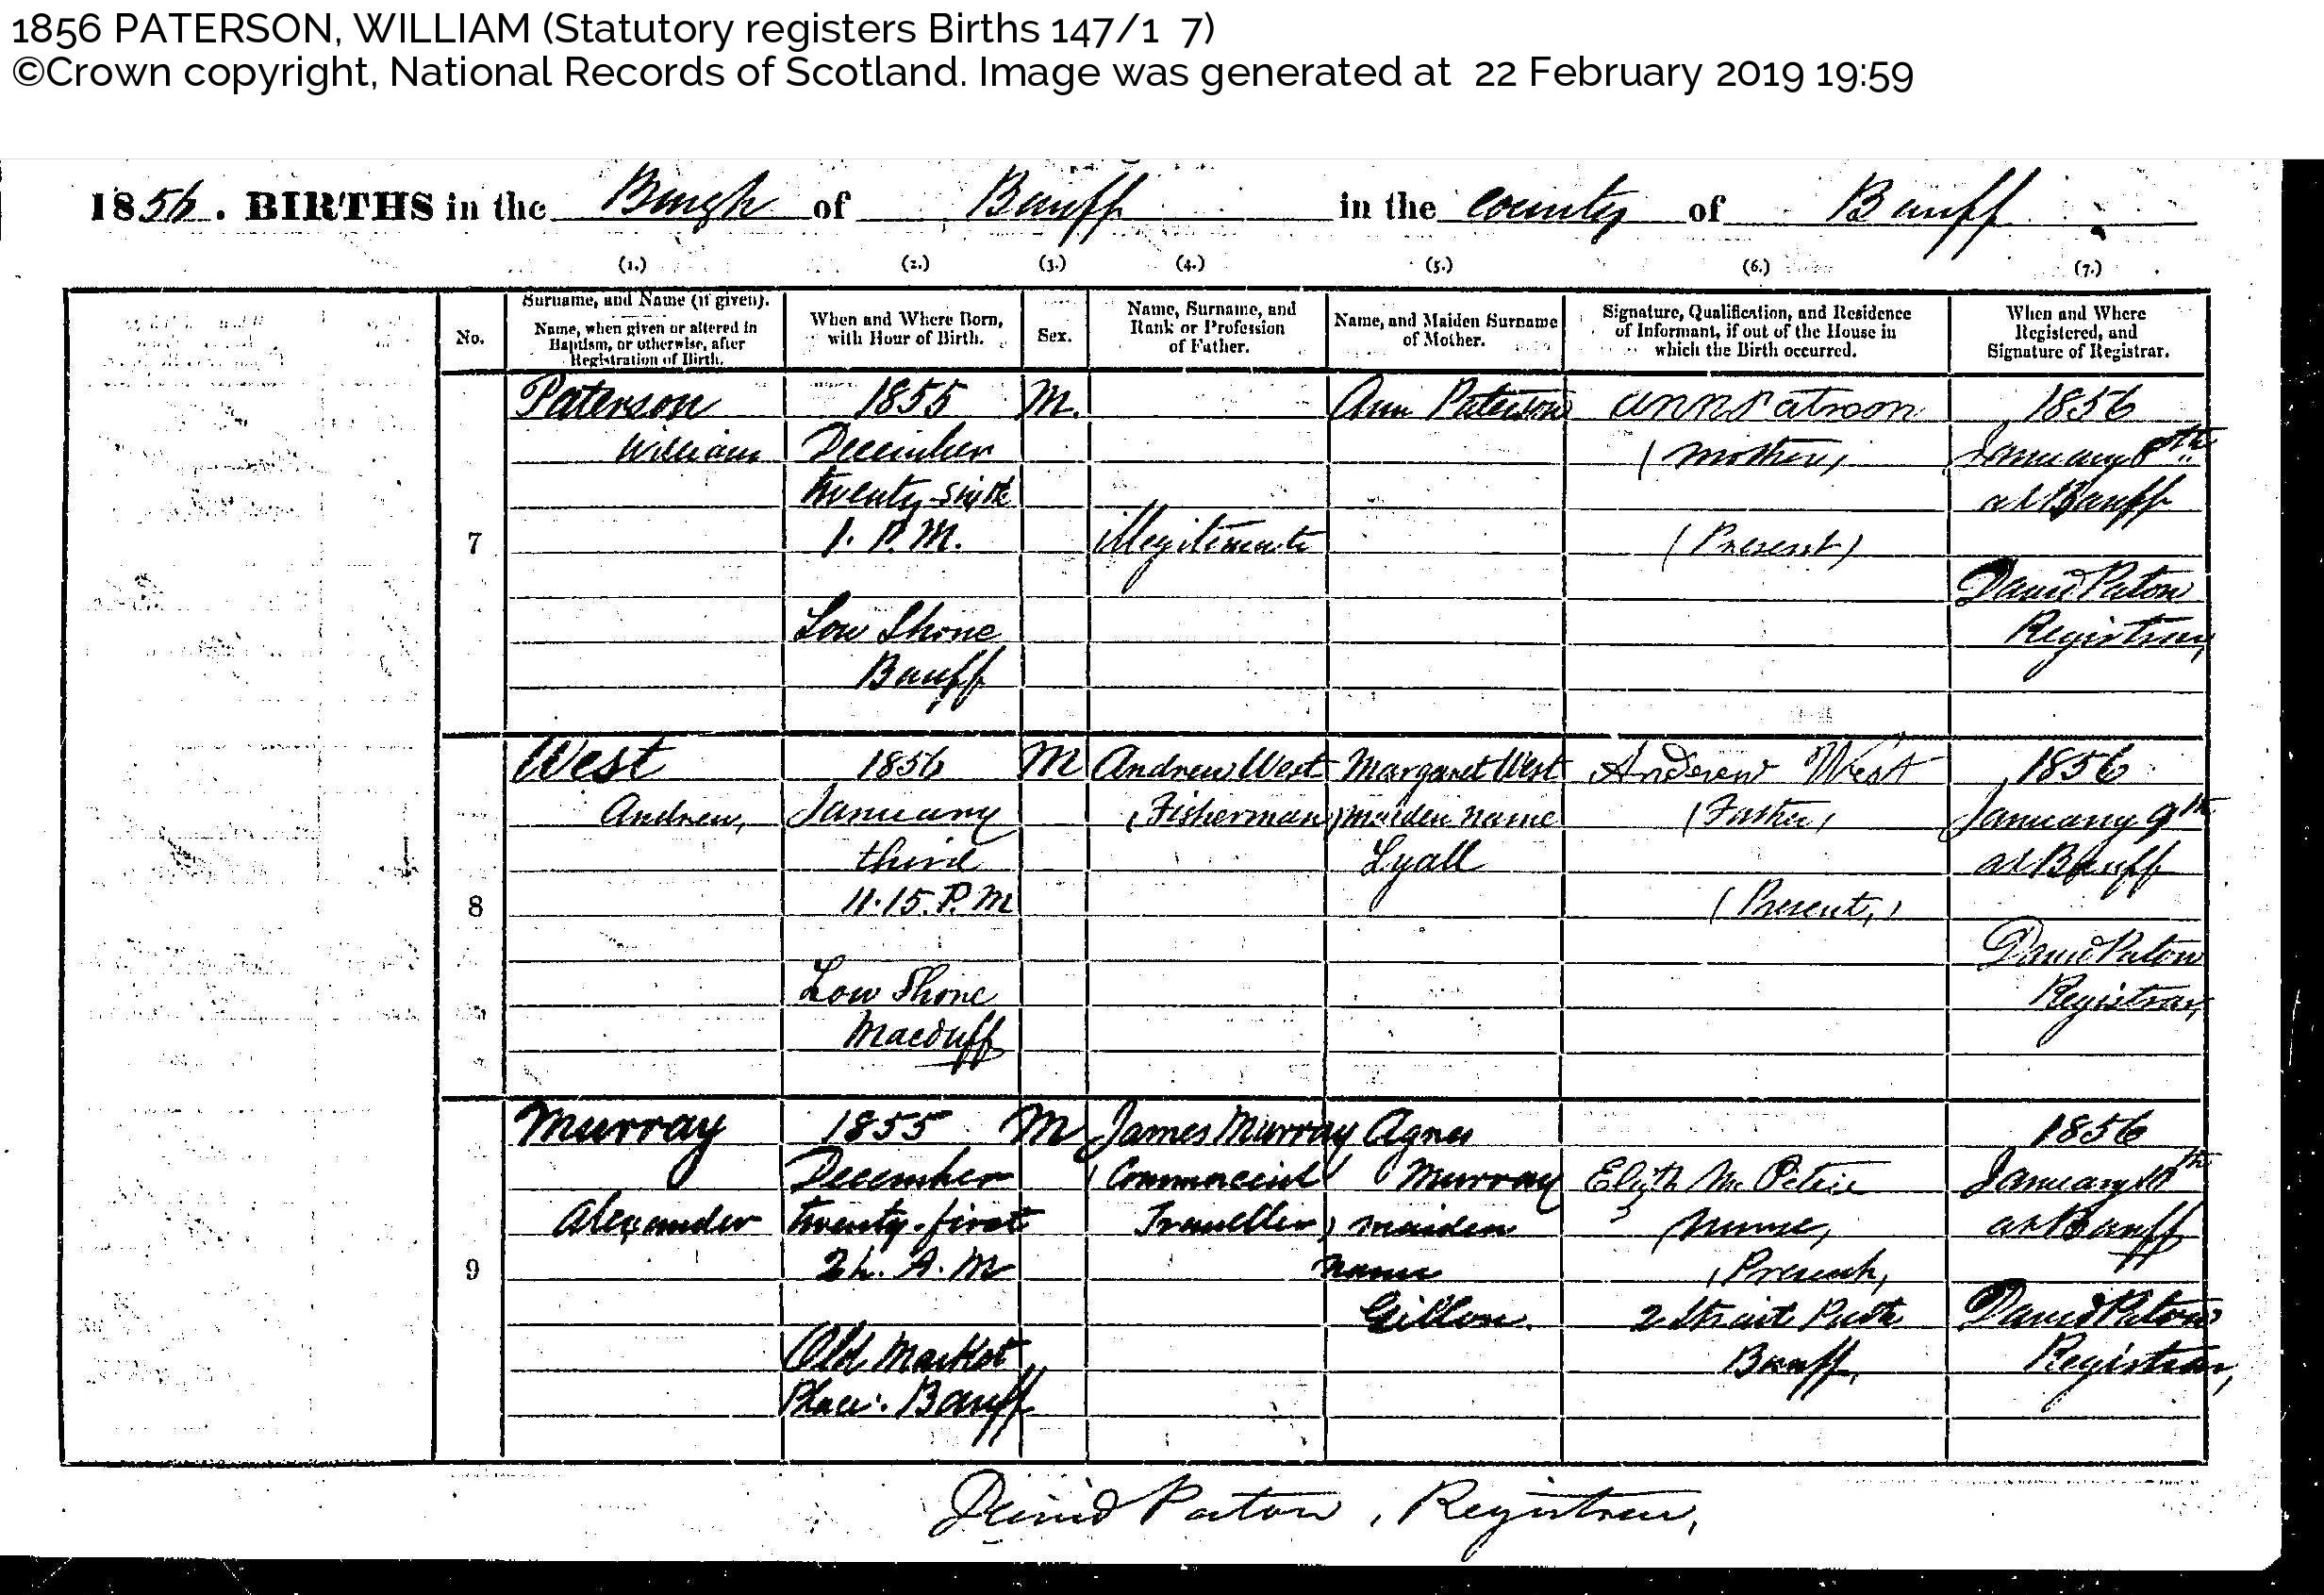 1856 PATERSON, WILLIAM (Statutory registers Births 147/1 7)
©Crown copyright, National Records of Scotland. Image was generated at 22 February 2019 19:59
1856. BIRTHS in the Burgh of Banff in the County of Banff
(1.) (2.) (3.) (4.) (5.) (6.) (7.)
No.
Surname, and Name (if given).
Name, when given or altered in
Baptism, or otherwise, after
Registration of Birth.
When and Where Born,
with Hour of Birth.
Sex.
Name, Surname, and
Rank or Profession
of Father.
Name, and Maiden Surname
of Mother.
Signature, Qualification, and Residence
of Informant, if out of the House in
which the Birth occurred.
When and Where
Registered, and
Signature of Registrar.
7
Paterson
William
1855
December
twenty-sixth
1. P.M.
Low Shore
Banff
M.
illegitimate
Ann Paterson
Ann Patrson
(Mother,
(Present)
1856
January 8th
at Banff
David Paton
Registrar,
8
West
Andrew,
1856
January
third
11.15. P.M
Low Shore
Macduff
M
Andrew West
(Fisherman)
Margaret West
maiden name
Lyall
Andrew West
(Father,
(Present,)
1856
January 9th
at Banff
David Paton
Registrar,
9
Murray
Alexander
1855
December
twenty-first
2h. A.M
Old Market
Place. Banff
M
James Murray
(Commercial
Traveller)
Agnes
Murray
maiden
name
Gillon.
Elizth McPetrie
Nurse,
Present,
2 Strait Path
Banff,
1856
January 10th
at Banff
David Paton
Registrar,
David Paton, Registrar,